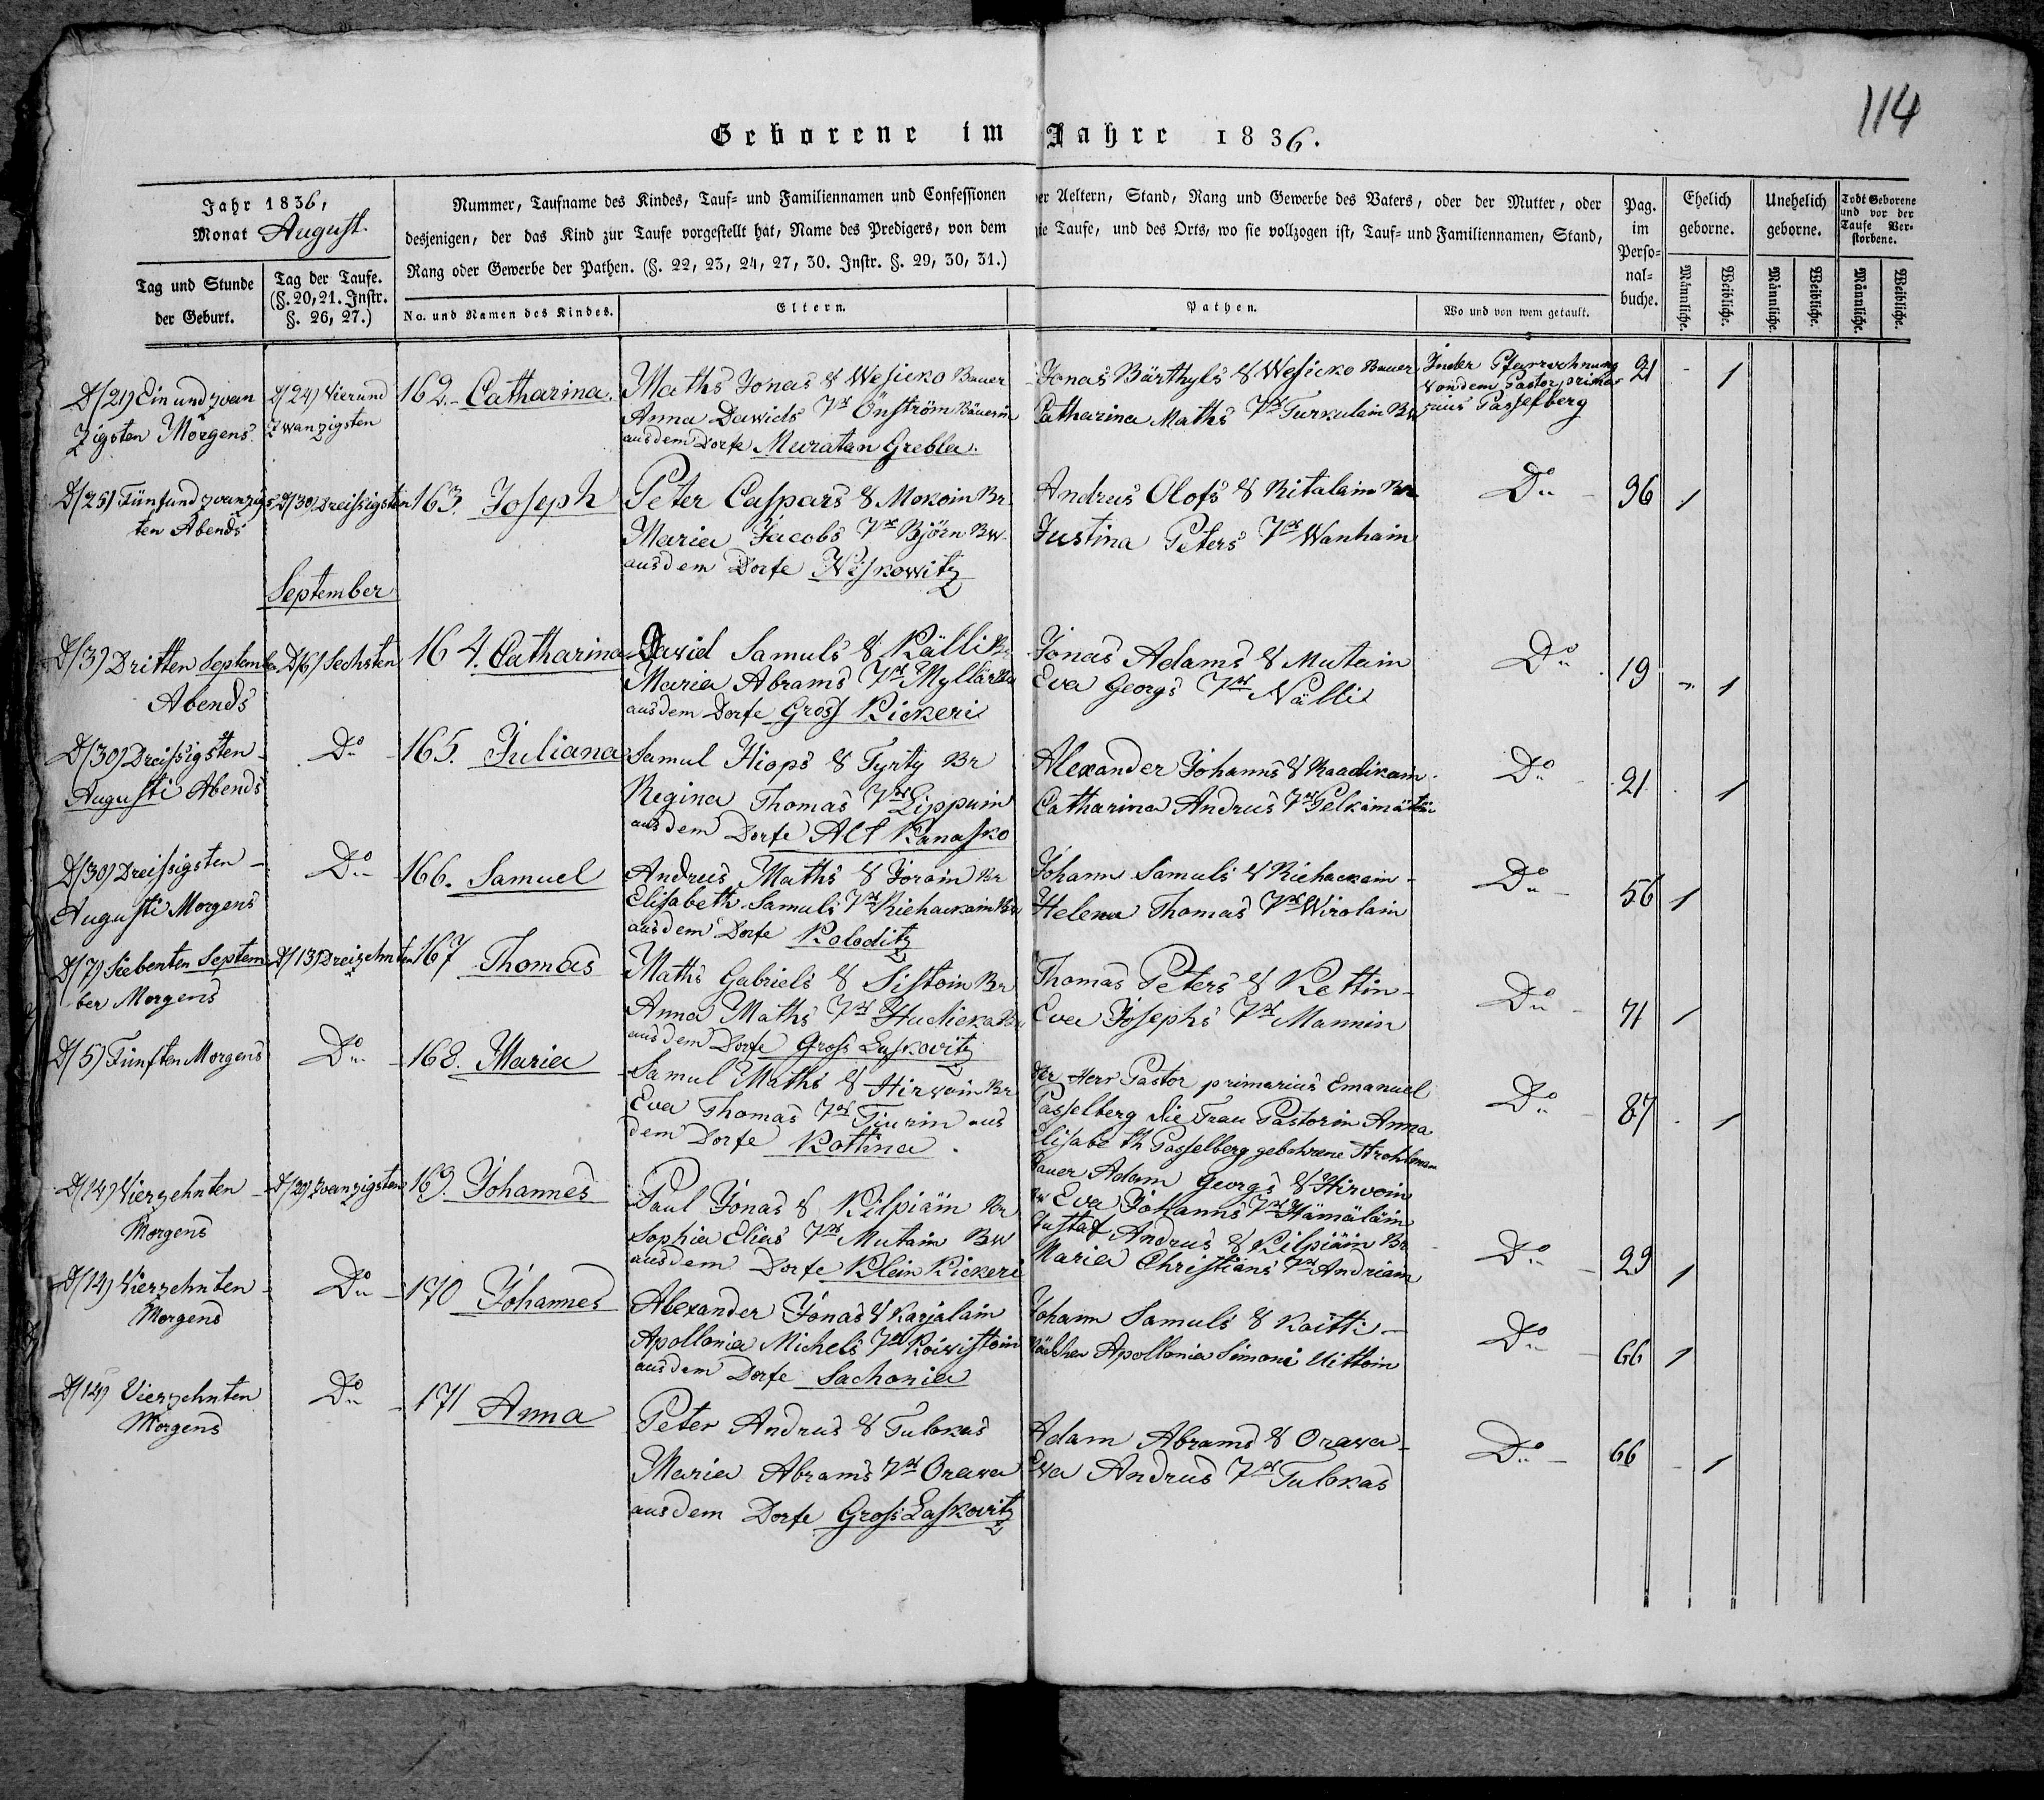 114
Geborene im Jahre 1836.
Jahr 1836,
Monat August.
Tag und Stunde
der Geburt.
Tag der Taufe.
(§. 20, 21. Instr.
§. 26, 27.)
Nummer, Taufname des Kindes, Tauf- und Familiennamen und Confessionen der Aeltern, Stand, Rang und Gewerbe des Vaters, oder der Mutter, oder
desjenigen, der das Kind zur Taufe vorgestellt hat, Name des Predigers, von dem die Taufe, und des Orts, wo sie vollzogen ist, Tauf- und Familiennamen, Stand,
Rang oder Gewerbe der Pathen. (§. 22, 23, 24, 27, 30. Instr. §. 29, 30, 31.)
No. und Namen des Kindes.
Eltern.
Pathen.
Wo und von wem getauft.
Pag.
im
Perso-
nal-
buche.
Ehelich
geborne.
Unehelich
geborne.
Todt Geborene
und vor der
Taufe Ver-
storbene.
Männliche.
Weibliche.
Männliche.
Weibliche.
Männliche.
Weibliche.
D/21) Ein und zwan
zigsten Morgens
D/24) Vierund
zwanzigsten
162. Catharina.
Maths Jonas S Wesicko Bauer
Anna Dawids Tr Önström Bäuerin
aus dem Dorfe Muratan Grebla.
Jonas Bärthyls S Wesicko Bauer
Catharina Maths Tr Turkulain Bw
In der Pfarrwohnung
von dem Pastor prima-
rius Passelberg
21 - 1
D/25) Fünfundzwanzigs
ten Abends
D/30) Dreissigsten
163. Joseph
Peter Caspars S Mokoin Br
Maria Jacobs Tr Björn Bw
aus dem Dorfe Wiskowitz
Andrus Olofs S Ritalain Br
Justina Peters Tr Wanhain
Do
96 1
September
D/3) Dritten Septemb
Abends
D/6) Sechsten
164. Catharina
Dawid Samuls S Källi Br
Maria Abrams Tr Myllär Bw
aus dem Dorfe Gross Kickeri
Jonas Adams S Mutain
Eva Georgs Tr Nälli
Do
19 - 1
D/30) Dreissigsten
Augusti Abends
Do
165. Juliana
Samul Hiops S Tyrty Br
Regina Thomas Tr Lippuin
aus dem Dorfe Alt Kanasko
Alexander Johanns S Raadikain
Catharina Andrus Tr
Do
21. 1
D/30) Dreissigsten
Augusti Morgens
Do
166. Samuel
Andrus Maths S Jorain Br
Elisabeth Samuls Tr Riehackain Bw
aus dem Dorfe Koloditz
Johann Samuls S Riehackain
Helena Thomas Tr Wirolain
Do
56 1
D/7) Siebenten Septem
ber Morgens
D/13) Dreizehnten
167 Thomas
Maths Gabriels S Sistoin Br
Anna Maths Tr Hudicka Bw
aus dem Dorfe Gross Laskowitz
Thomas Peters S Kettin
Eva Josephs Tr Mannin
Do
71 1
D/5) Fünften Morgens
Do
168. Maria
Samul Maths S Hirwoin Br
Eva Thomas Tr Tiurin aus
dem Dorfe Kottina.
der Herr Pastor primarius Emanuel
Passelberg die Frau Pastorin Anna
Elisabeth Passelberg gebohrene
Bauer Adam Georgs S Hirvoin
Bw Eva Johanns Tr Hämäläin
Do
87 . 1
D/14) Vierzehnten
Morgens
D/20) Zwanzigsten
169. Johannes
Paul Jonas S Kilpiäin Br
Sophia Elias Tr Mutain Bw
aus dem Dorfe Klein Kickeri
Gustaf Andrus S Kilpiäin Br
Maria Christians Tr Andriain
Do
29 1
D/14) Vierzehnten
Morgens
Do
170 Johannes
Alexander Jonas S Karjalain
Apollonia Michels Tr Koiwistoin
aus dem Dorfe Sachonia
Johann Samuls S Koitti
Mädchen Apollonia Simoni Uittoin
Do
66 1
D/14) Vierzehnten
Morgens
Do
171 Anna
Peter Andrus S Tulokas
Maria Abrams Tr Orawa
aus dem Dorfe Gross Laskowitz
Adam Abrams S Orawa
Eva Andrus Tr Tulokas
Do
66 - 1